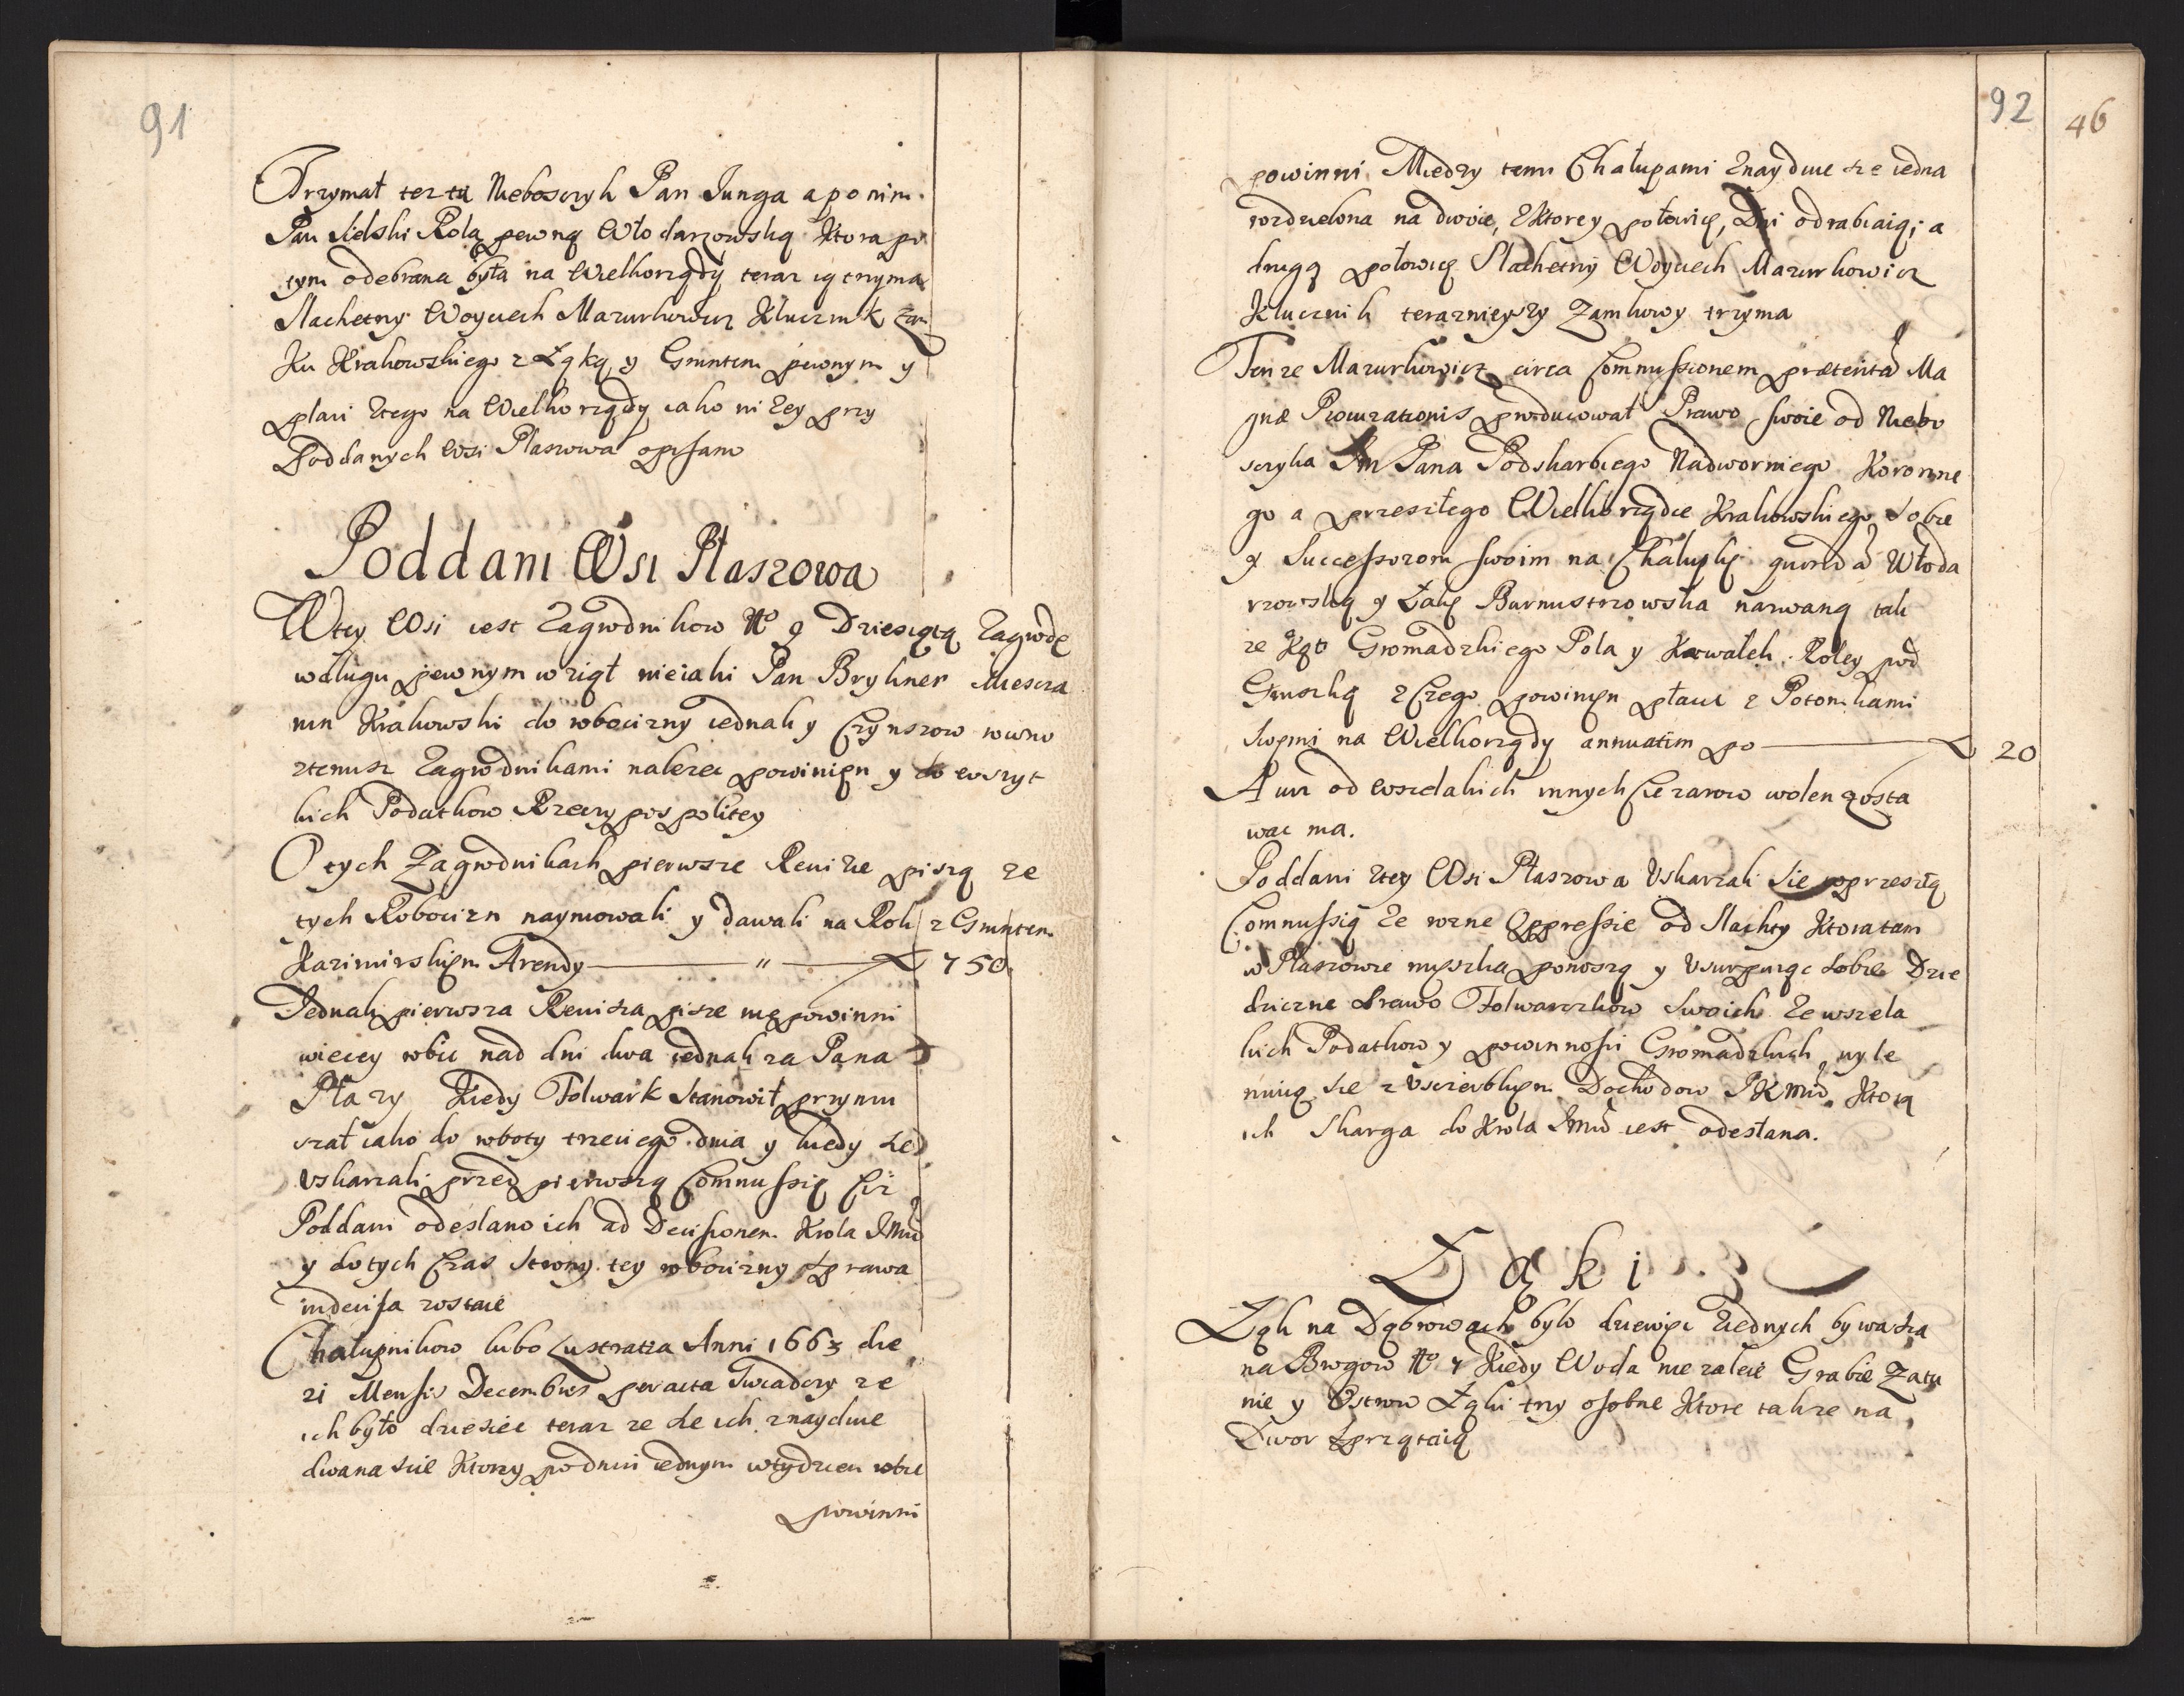 91
Trzymał tez tu Nieboszczyk Pan Iunga a po nim
Pan Sielski Rolą pewną Włodarzowską Ktora po
tym odebrana była na Wielkorządy teraz ią trzyma
Slachetny Woyciech Mazurkowicz Klucznik Zam
Ku Krakowskiego z Łąką y Gruntem pewnym y
płaci Ztego na Wielkorządy iako niżey przy
Poddanych Wsi Płaszowa opisano
Poddani Wsi Płaszowa
W tey Wsi iest Zagrodnikow No 9 Dziesiątą Zagrodę
w długu pewnym wziął nieiaki Pan Brykner Miescza
nin Krakowski do robocizny iednak y Czynszow rowno
z temisz Zagrodnikami nalezec powinięn y do wszyt
kich Podatkow Rzeczypospolitey
O tych Zagrodnikach pierwsze Rewizie piszą ze
tych Robocizn naymowali y dawali na Rok z Gruntem
Kazimirskięm Arendy — " — 750
Iednak pierwsza Rewizia pisze nię powinni
wiecey robic nad dni dwa iednak za Pana
Płazy Kiedy Folwark stanowił przymu
szał iako do roboty trzeciego dnia y kiedy sie
Uskarzali przed pierwszą Commissią Ciż
Poddani odesłano ich ad Decisionem Krola JMci
y do tych Czas strony tey robocizny Sprawa
indecisa zostaie
Chałupnikow lubo Lustratia Anni 1663 die
21 Mensis Decembris peracta Swiadczy ze
ich było dziesiec teraz ze sie ich znayduie
dwanascie Ktorzy po dniu iednym w tydzien robic
powinni
92
46
powinni Miedzy temi Chałupami Znayduie sie iedna
rozdzielona na dwoie, Zktorey połowicę, Dni odrabiaią; a
drugą połowicę Slachetny Woyciech Mazurkowicz
Klucznik teraznieyszy Zamkowy trzyma
Tenze Mazurkowicz circa Commissionem præterita Ma
gnæ Procurationis producował Prawo swoie od Niebo
szczyka Jm Pana Podskarbiego Nadwornego Koronne
go a przeszłego Wielkorządce Krakowskiego Sobie
y Successorom swoim na Chałupkę quonda Włoda
rzowską y Łakę Burmistrzowska nazwaną tak
ze Kąt Gromadzkiego Pola y Kawałek Roley pod
Gruszką z Czego powinięn płacic z Potomkami
swęmi na Wielkorządy annuatim po — 20
A iusz od wszelakich innych Ciezarow wolen zosta
wac ma.
Poddani ztey Wsi Płaszowa Uskarzali sie poprzeszłą
Commissią Ze rozne Oppressie od Slachty Ktora tam
w Płaszowie mieszka ponoszą y Usurpuiąc sobie Dzie
dziczne Prawo Folwarczkow Swoich Ze wszela
kich Podatkow y powinnosci Gromadzkich wyłe
muią sie z Uscierblięm Dochodow JKMci Ktorą
ich Skarga do Krola JMci iest odesłana.
Łąki
Łąk na Dąbrowach było dziewięc Ziednych bywa Sia
na Brogow No 4 Kiedy Woda nie zaleie Grabie Zatu
nie y Ostrow Łąki trzy osobne Ktore takze na
Dwor Sprzątaią